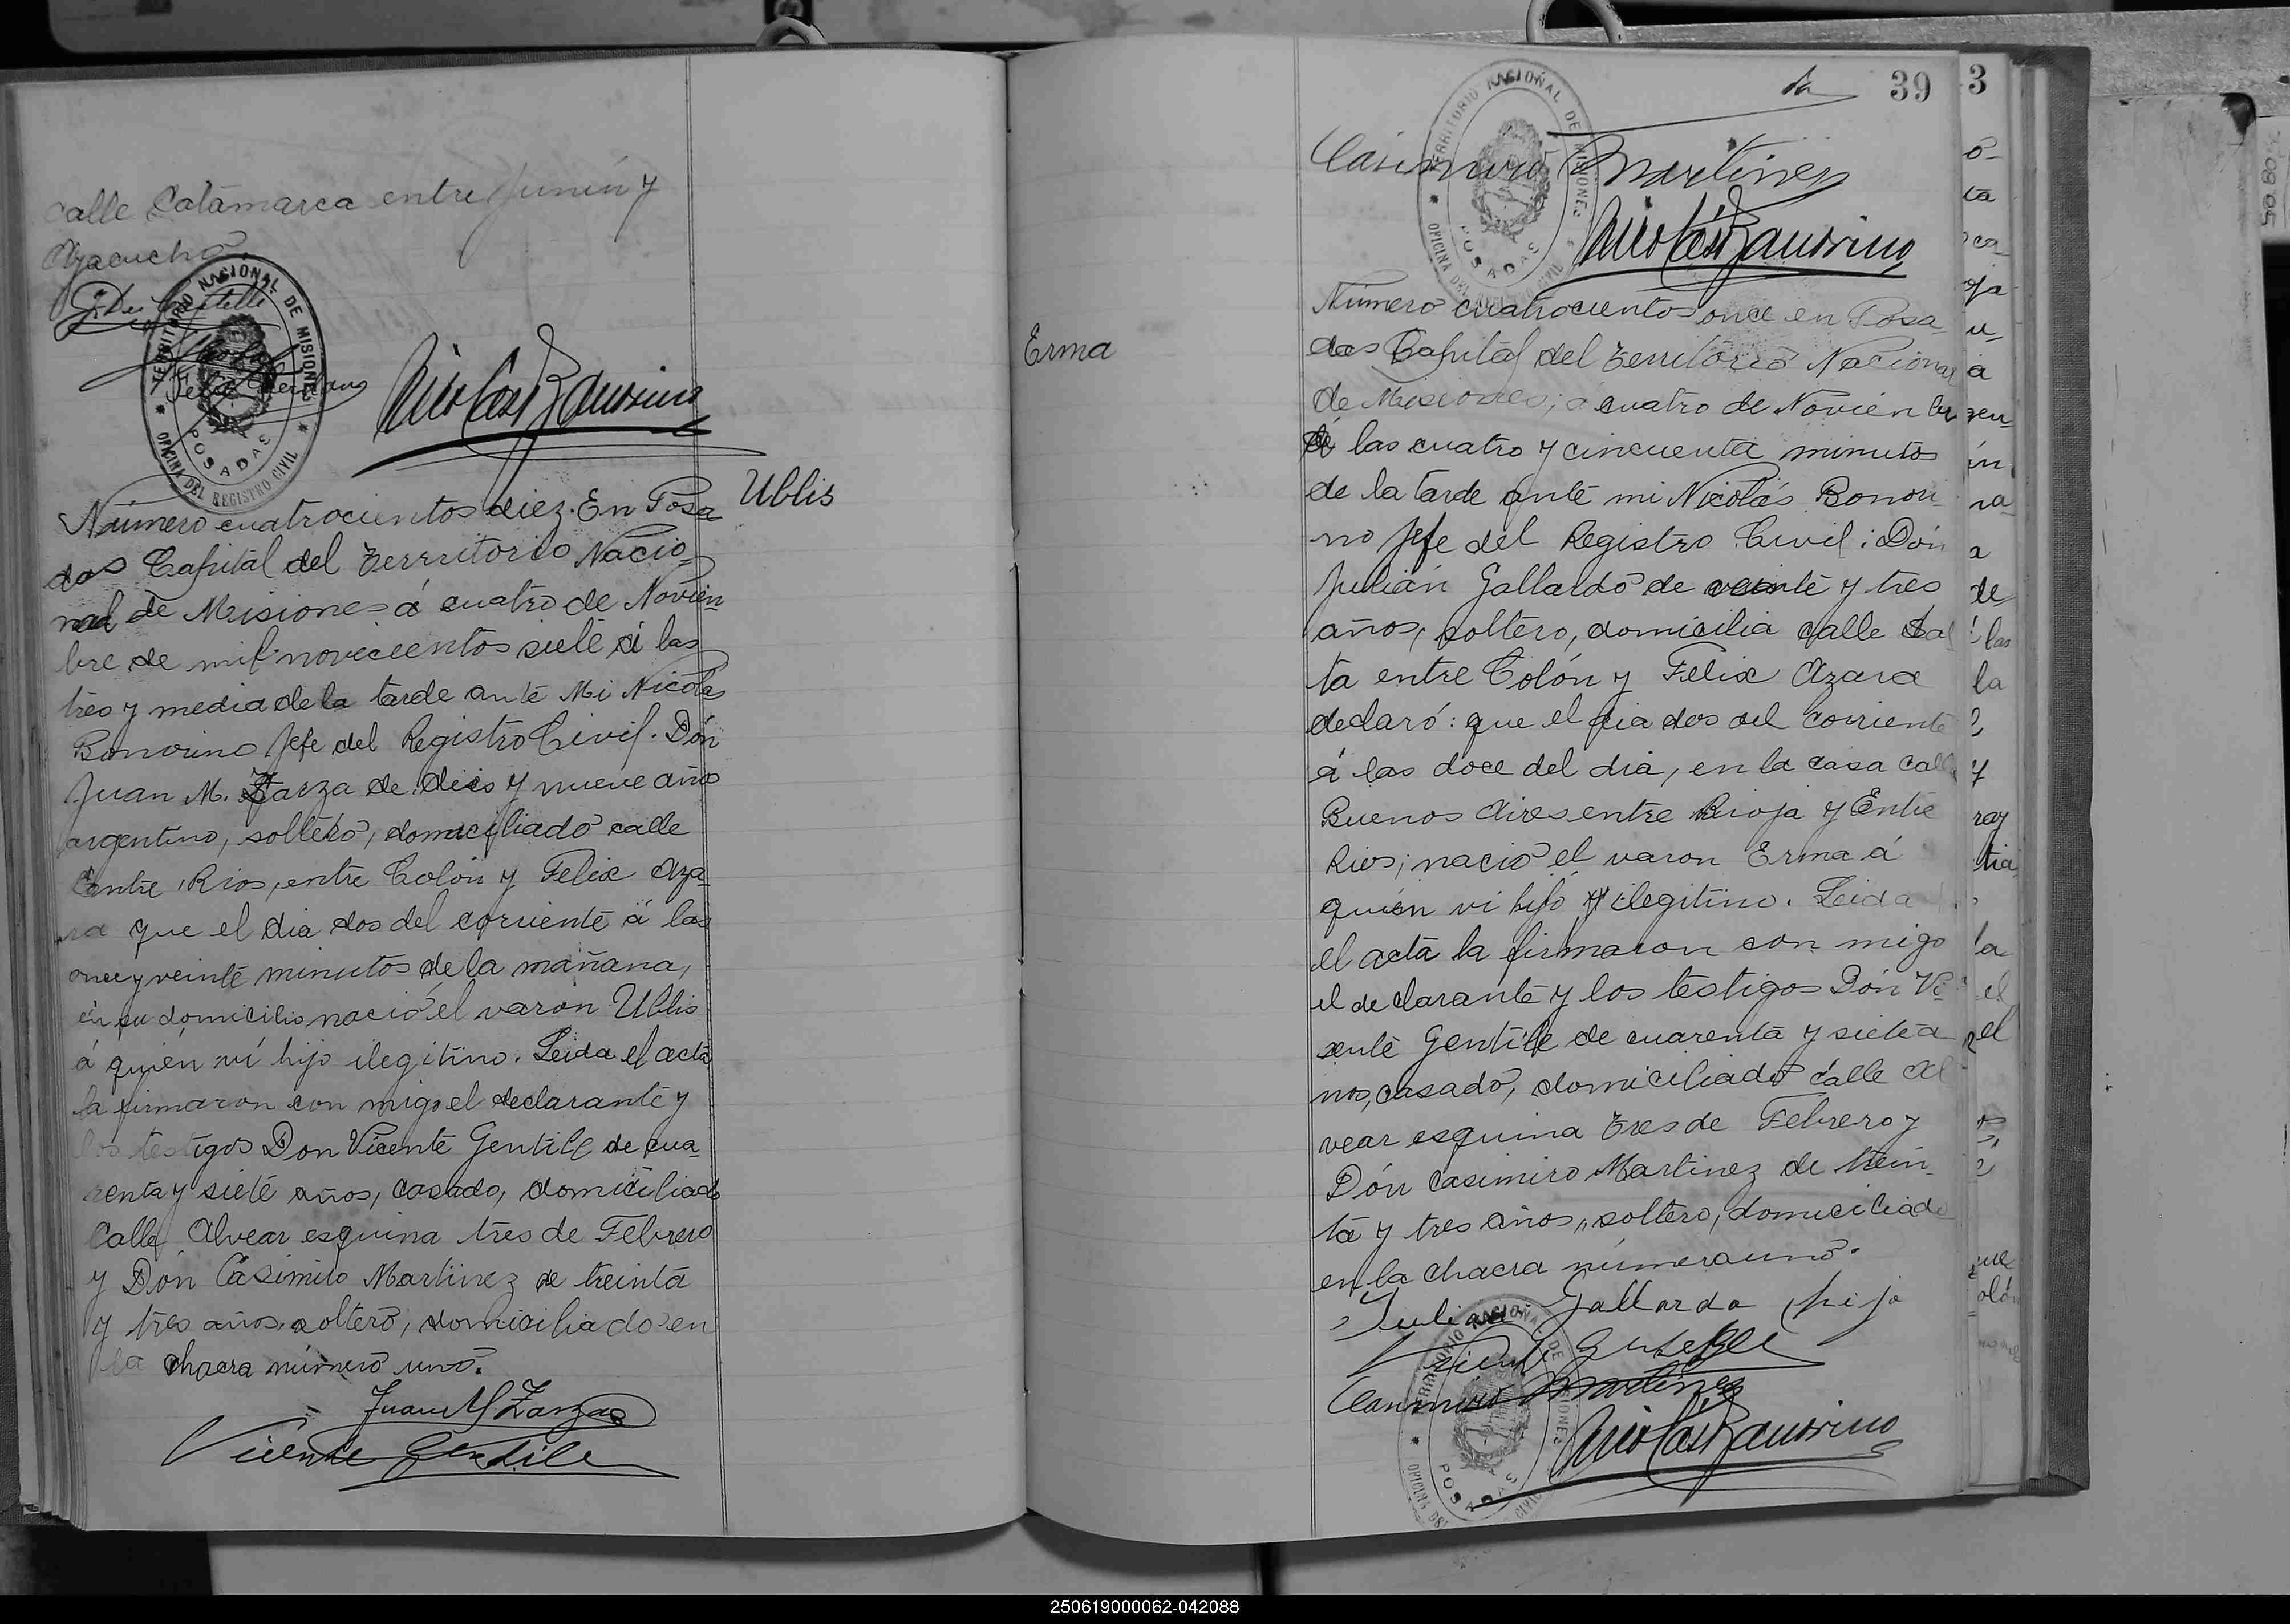 calle Catamarca entre Junín y
Ayacucho.
TERRITORIO NACIONAL DE MISIONES
POSADAS
OFICINA DEL REGISTRO CIVIL
Nicolás Bonorino
Ublis
Número cuatrocientos diez. En Posa
das Capital del Terrritorio Nacio
nal de Misiones á cuatro de Novien
bre de mil novecientos siete á las
tres y media de la tarde ante Mi Nicolas
Bonorino Jefe del Registro Civil. Dón
Juan M. Zarza de dies y nueve año
argentino, soltero, domiciliado calle
Entre Rios, entre Colón y Felix Aza
ra que el dia dos del corriente á las
once y veinte minutos de la mañana,
en su domicilio nació el varon Ublis
á quién ví hijo ilegitino. Leida el acta
la firmaron con migo el declarante y
los testigos Don Vicente Gentile de cua
renta y siete años, casado, domiciliado
Calle Alvear esquina tres de Febrero
y Dón Casimiro Martinez de treinta
y tres años, soltero, domiciliado en
la chacra número uno.
Juan M Zarza
Vicente Gentile
39
Casimiro Martinez
TERRITORIO NACIONAL DE MISIONES
POSADAS
Nicolás Bonorino
Erma
Número cuatrocientos once en Posa
das Capital del Territorio Nacional
de Misiones, á cuatro de Novien bre
á las cuatro y cincuenta minutos
de la tarde ante mi Nicolás Bonori
no Jefe del Registro Civil: Dón
Julián Gallardo de veinte y tres
años, soltero, domicilia calle Sal
ta entre Colón y Felix Azara
declaró: que el dia dos del corriente
á las doce del dia, en la casa calle
Buenos Aires entre Rioja y Entre
Rios; nació el varon Erma á
quién vi hijo ilegitino. Leida
el acta la firmaron con migo
el declarante y los testigos Dón Vi
sente Gentile de cuarenta y siete a
nos, casado, domiciliado calle Al
vear esquina tres de Febrero y
Dón Casimiro Martinez de trein
ta y tres años, soltero, domiciliado
en la chacra número uno.
Julian Gallardo hijo
Vicente Gentile
Casimiro Martinez
Nicolás Bonorino
TERRITORIO NACIONAL DE MISIONES
POSADAS
250619000062-042088